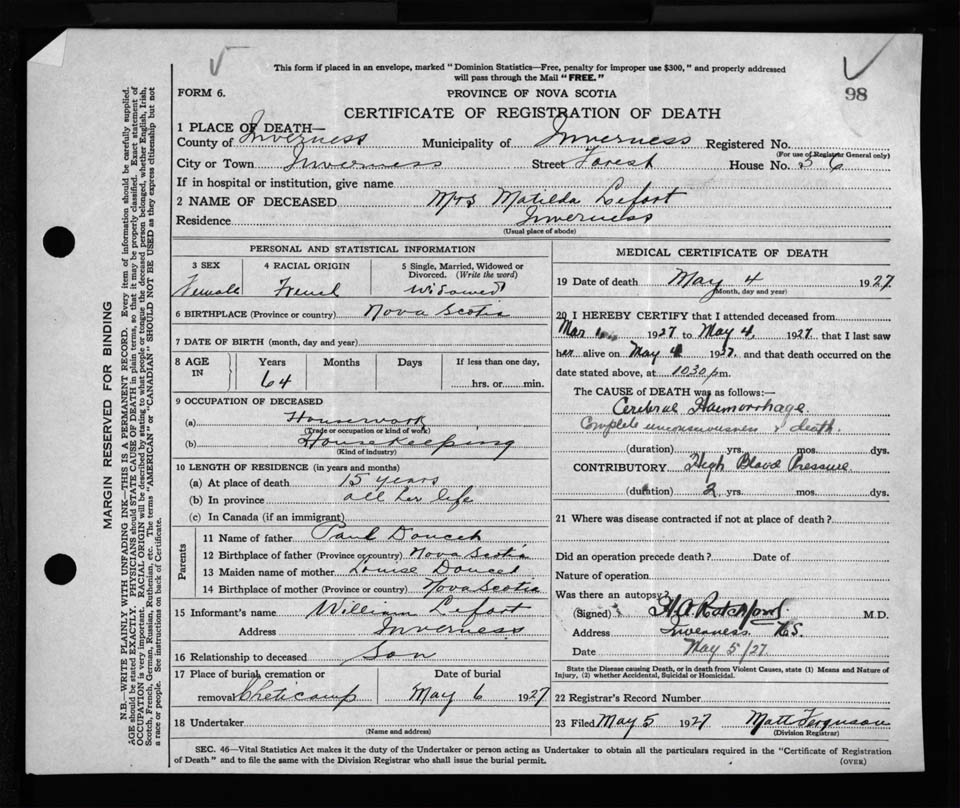 This form if placed in an envelope, marked "Dominion Statistics—Free, penalty for improper use $300," and properly addressed
will pass through the Mail "FREE."
FORM 6. PROVINCE OF NOVA SCOTIA 98
CERTIFICATE OF REGISTRATION OF DEATH
1 PLACE OF DEATH—
County of Inverness Municipality of Inverness Registered No.
(For use of Registrar General only)
City or Town Inverness Street Forest House No. 36
If in hospital or institution, give name
2 NAME OF DECEASED Mrs Matilda Lefort
Residence Inverness
(Usual place of abode)
PERSONAL AND STATISTICAL INFORMATION
3 SEX 4 RACIAL ORIGIN 5 Single, Married, Widowed or
Divorced. (Write the word)
Female French Widowed
6 BIRTHPLACE (Province or country) Nova Scotia
7 DATE OF BIRTH (month, day and year)
8 AGE IN Years Months Days If less than one day,
64 hrs. or min.
9 OCCUPATION OF DECEASED
(a) Housework
(Trade or occupation or kind of work)
(b) Housekeeping
(Kind of industry)
10 LENGTH OF RESIDENCE (in years and months)
(a) At place of death 15 years
(b) In province all her life
(c) In Canada (if an immigrant)
Parents
11 Name of father Paul Doucet
12 Birthplace of father (Province or country) Nova Scotia
13 Maiden name of mother Louise Doucet
14 Birthplace of mother (Province or country) Nova Scotia
15 Informant's name William Lefort
Address Inverness
16 Relationship to deceased Son
17 Place of burial cremation or Date of burial
removal Cheticamp May 6 1927
18 Undertaker
(Name and address)
MEDICAL CERTIFICATE OF DEATH
19 Date of death May 4 1927
(Month, day and year)
20 I HEREBY CERTIFY that I attended deceased from
Mar 1927 to May 4, 1927. that I last saw
her alive on May 4 1927. and that death occurred on the
date stated above, at 10 30 pm.
The CAUSE of DEATH was as follows:
Cerebral Haemorrhage
Complete unconsciousness & death.
(duration) yrs. mos. dys.
CONTRIBUTORY High Blood Pressure
(duration) 2 yrs. mos. dys.
21 Where was disease contracted if not at place of death?
Did an operation precede death? Date of
Nature of operation
Was there an autopsy?
(Signed) H.A. Ratchford M.D.
Address Inverness N.S.
Date May 5/27
State the Disease causing Death, or in death from Violent Causes, state (1) Means and Nature of
Injury, (2) whether Accidental, Suicidal or Homicidal.
22 Registrar's Record Number
23 Filed May 5 1927 Matt Ferguson
(Division Registrar)
SEC. 46—Vital Statistics Act makes it the duty of the Undertaker or person acting as Undertaker to obtain all the particulars required in the "Certificate of Registration
of Death" and to file the same with the Division Registrar who shall issue the burial permit. (OVER)
MARGIN RESERVED FOR BINDING
N.B.—WRITE PLAINLY WITH UNFADING INK—THIS IS A PERMANENT RECORD. Every item of information should be carefully supplied.
AGE should be stated EXACTLY. PHYSICIANS should STATE CAUSE OF DEATH in plain terms, so that it may be properly classified. Exact statement of
OCCUPATION is very important. RACIAL ORIGIN will be described by stating to what people or tongue the deceased person belonged, whether English, Irish,
Scotch, French, German, Russian, Ruthenian, etc. The terms "AMERICAN" or "CANADIAN" SHOULD NOT BE USED as they express citizenship but not
a race or people. See instructions on back of Certificate.